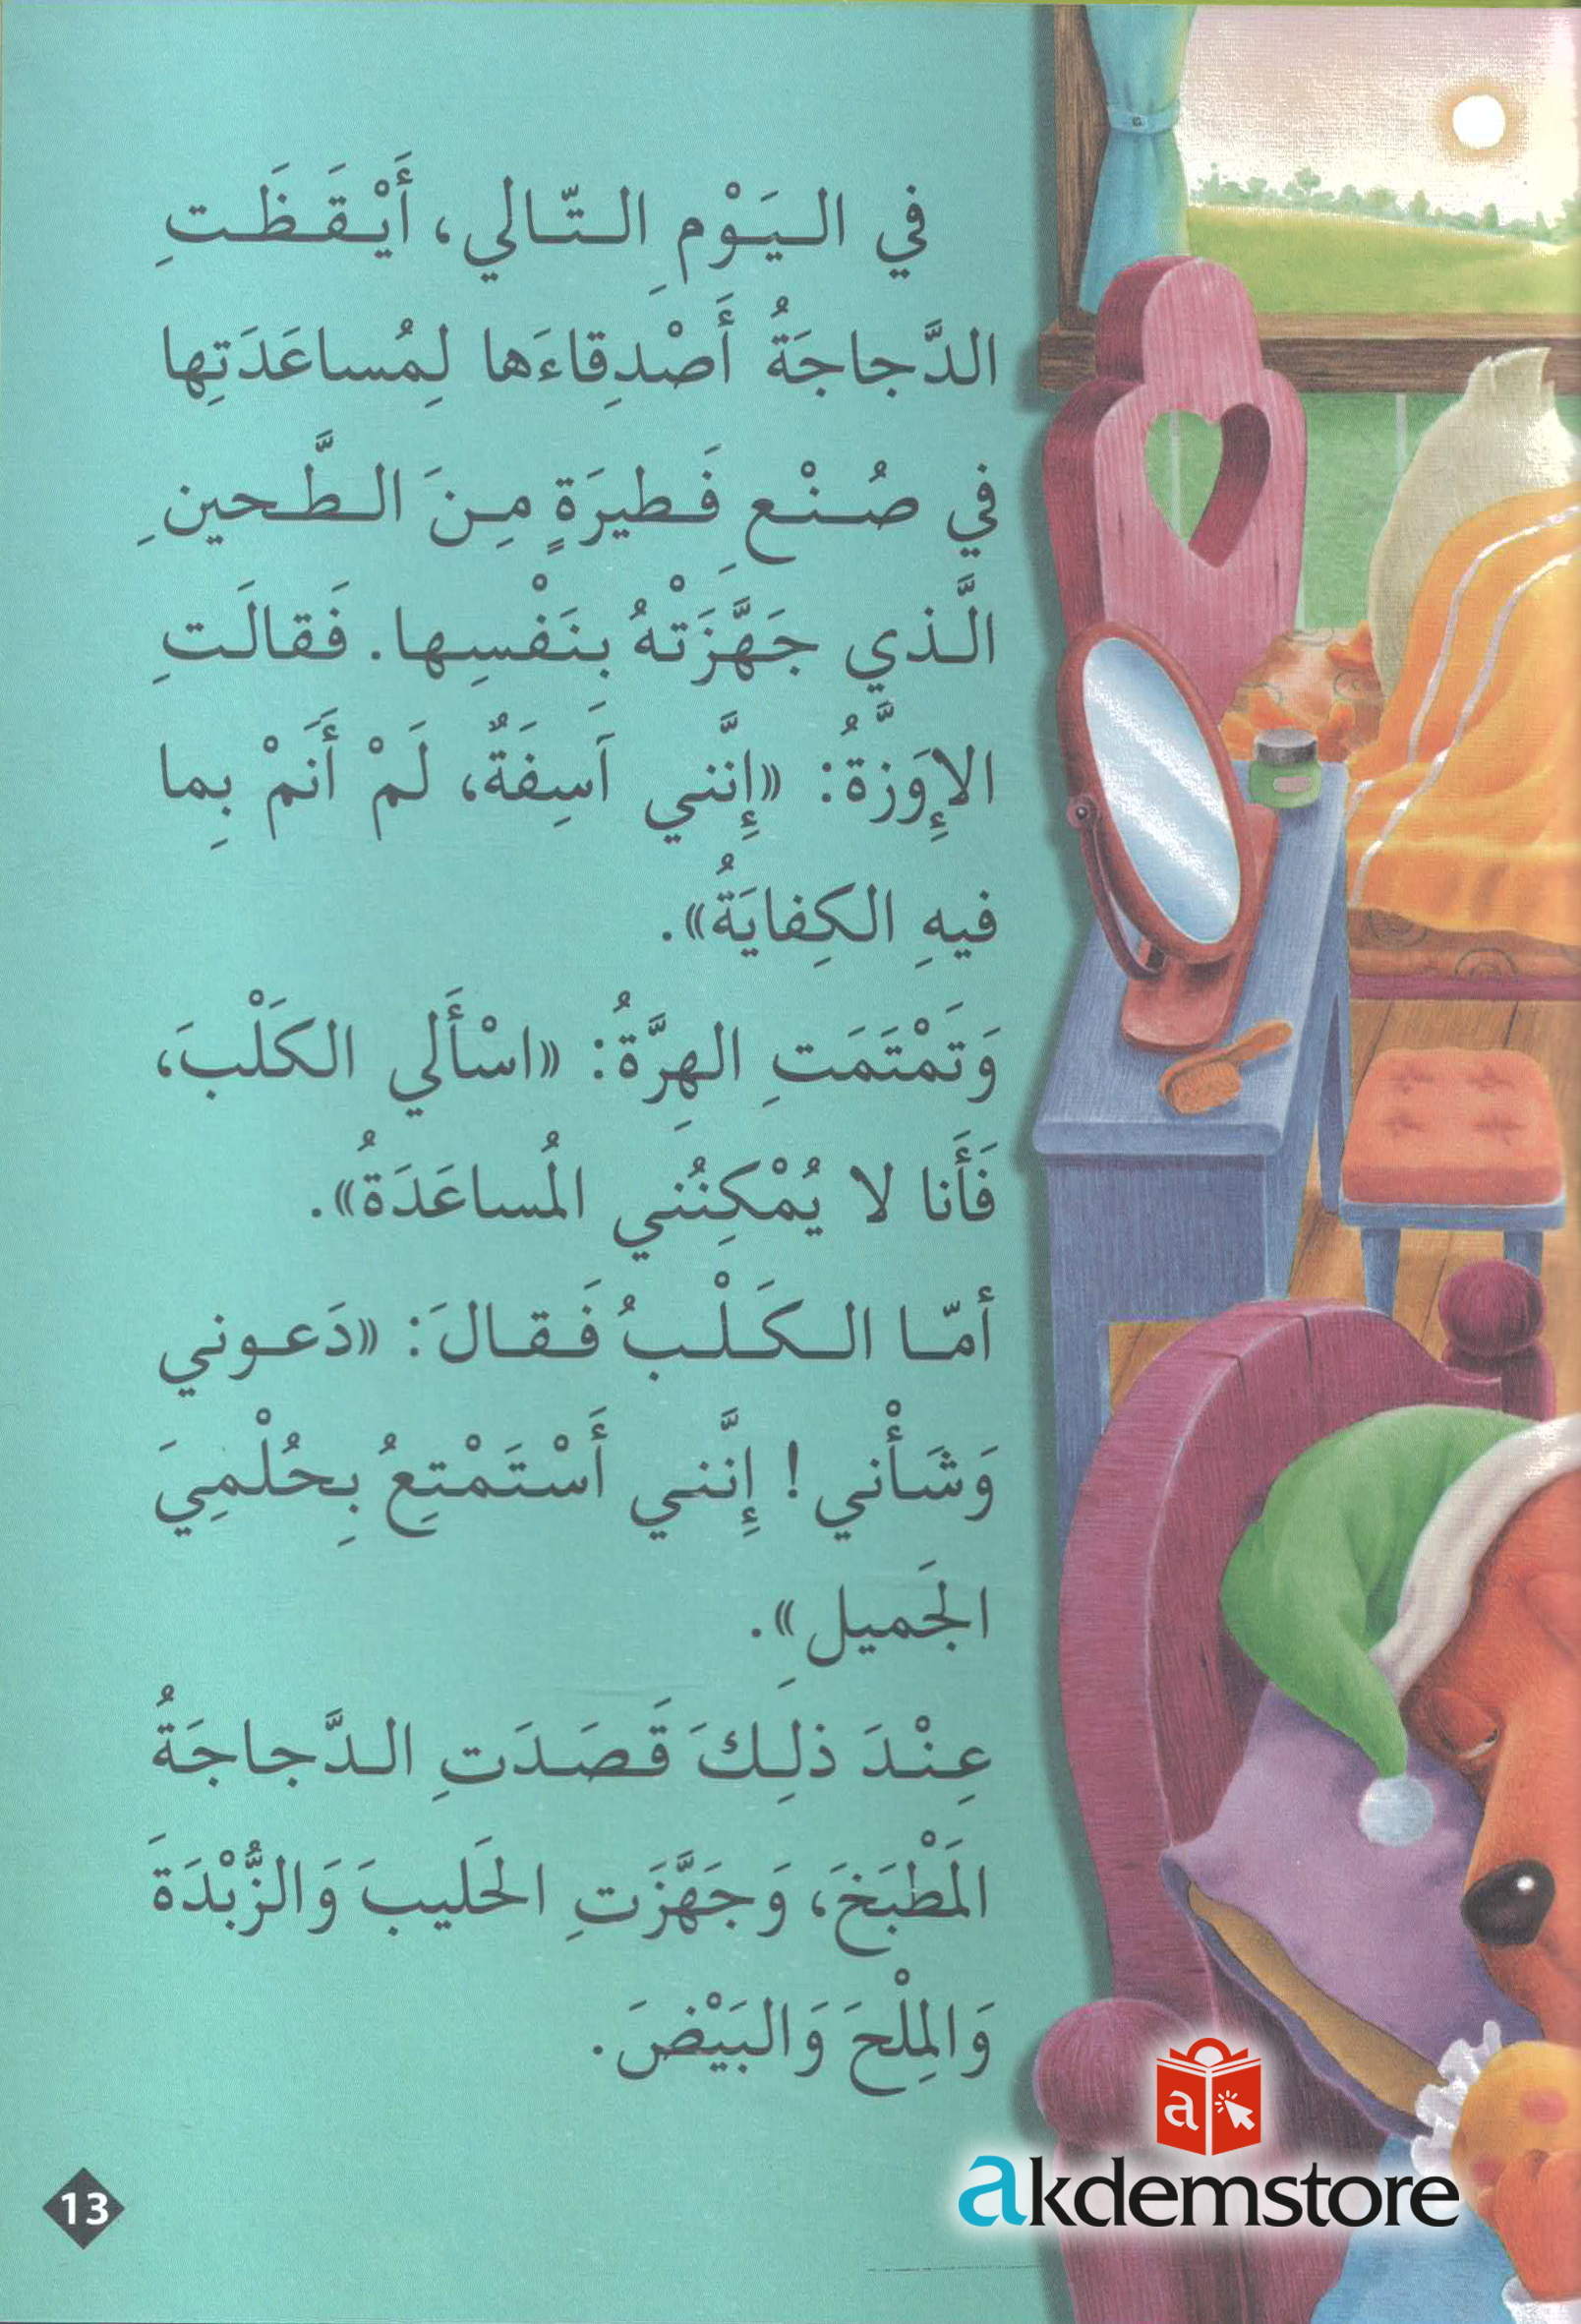 في اليَوْمِ التّالي، أَيْقَظَتِ
الدَّجاجَةُ أَصْدِقاءَها لِمُساعَدَتِها
في صُنْعِ فَطيرَةٍ مِنَ الطَّحينِ
الَّذي جَهَّزَتْهُ بِنَفْسِها. فَقالَتِ
الإِوَزَّةُ: «إِنَّني آَسِفَةٌ، لَمْ أَنَمْ بِما
فيهِ الكِفايَةُ».
وَتَمْتَمَتِ الهِرَّةُ: «اسْأَلي الكَلْبَ،
فَأَنا لا يُمْكِنُني المُساعَدَةُ».
أمّا الكَلْبُ فَقالَ: «دَعوني
وَشَأْني! إِنَّني أَسْتَمْتِعُ بِحُلْمِيَ
الجَميلِ».
عِنْدَ ذلِكَ قَصَدَتِ الدَّجاجَةُ
المَطْبَخَ، وَجَهَّزَتِ الحَليبَ وَالزُّبْدَةَ
وَالمِلْحَ وَالبَيْضَ.
13
a
akdemstore